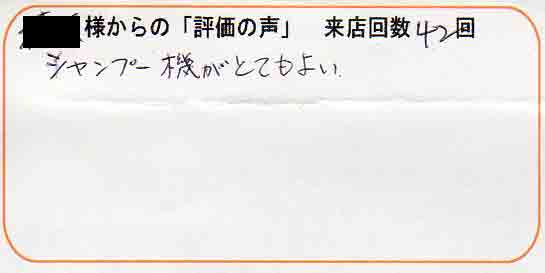 様からの「評価の声」　来店回数42回
シャンプー機がとてもよい.